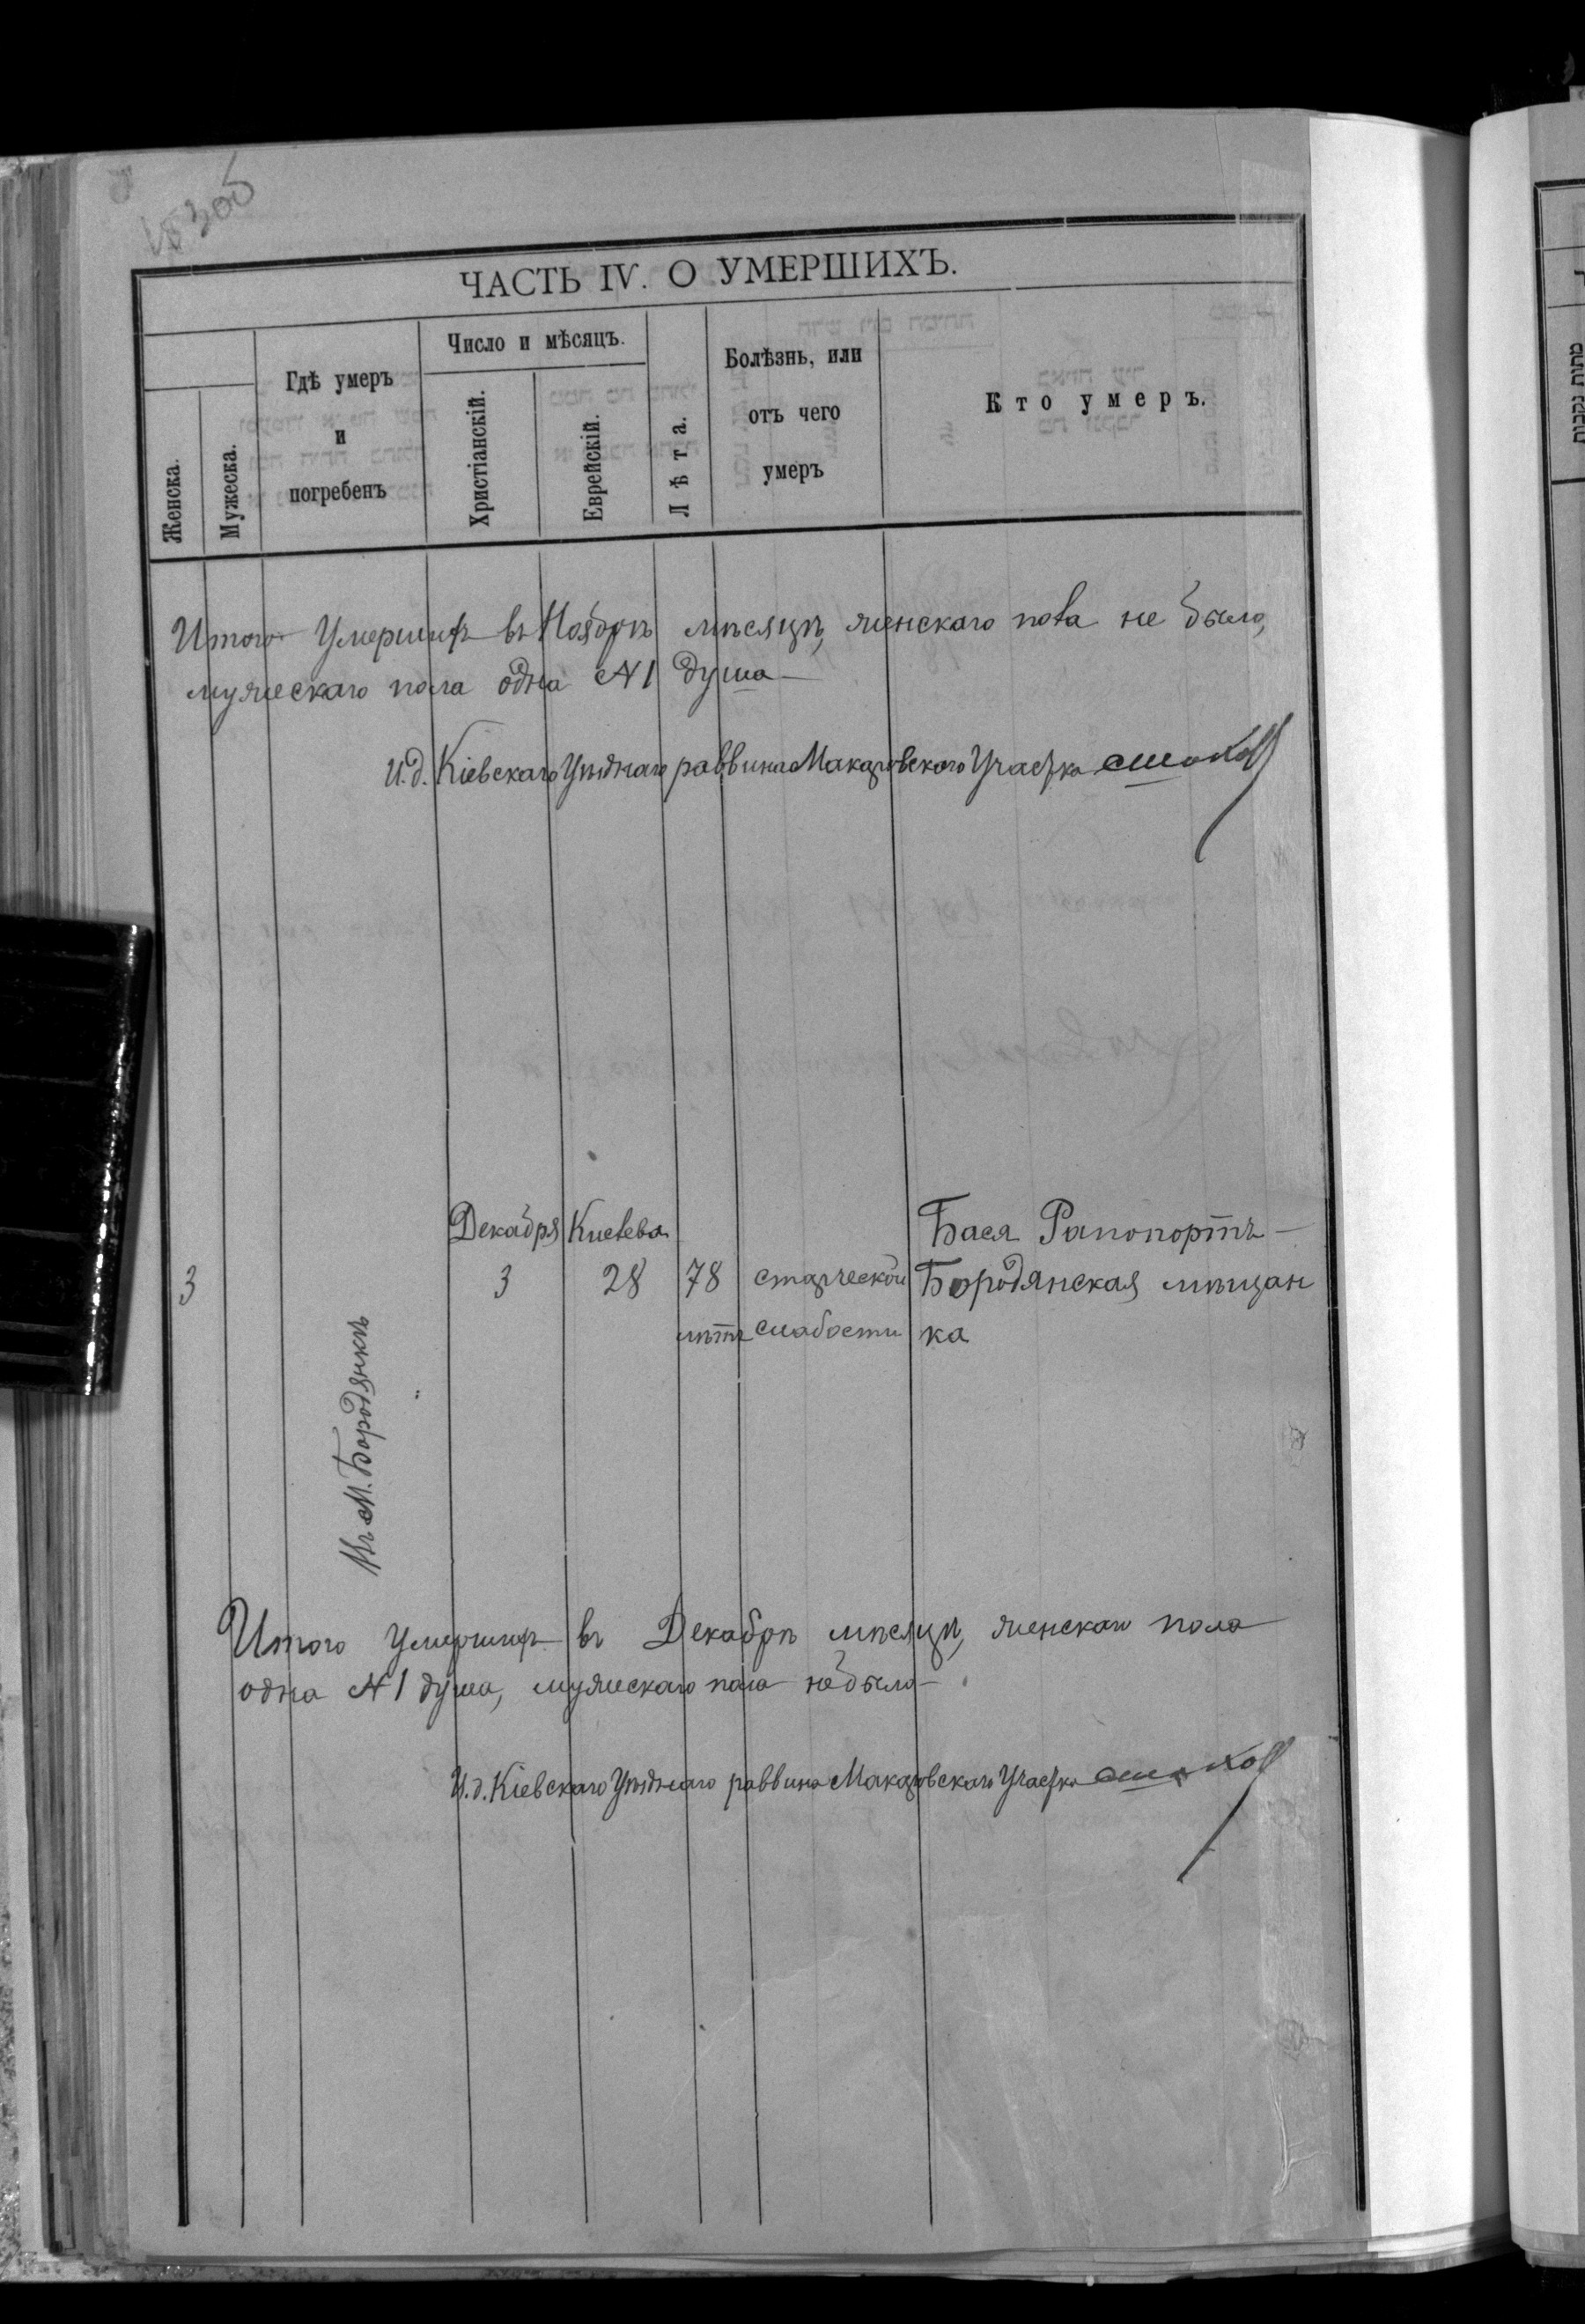 ЧАСТЬ IV. О УМЕРШИХЪ.
Женска.
Мужеска.
Гдѣ умеръ
и
погребенъ
Число и мѣсяцъ.
Христіанскій.
Еврейскій.
Лѣта.
Болѣзнь, или
отъ чего
умеръ
Кто умеръ.
Итого Умершихъ въ Ноябрѣ мѣсяцѣ, женскаго пола не было,
мужескаго пола одна №1 душа
И.д. Кіевскаго Уѣзднаго раввина Макаровскаго Участка
Декабря Кислева Бася Рапопортъ
3 3 28 78 старческой Бородянская мѣщан
лѣтъ слабости ка
Въ М. Бородянкѣ
Итого Умершихъ въ Декабрѣ мѣсяцѣ, женскаго пола
одна №1 душа, мужескаго пола небыло
И.д. Кіевскаго Уѣзднаго раввина Макаровскаго Участка